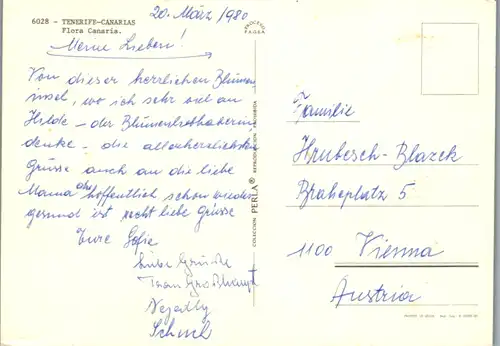 6028 - TENERIFE-CANARIAS
Flora Canaria.
20. März 1980
Meine Lieben!
Von dieser herrlichen Blumen
insel, wo ich sehr viel an
Hilde - der Blumenliebhaberin
denke - die allerherzlichsten
Grüsse auch an die liebe
Mama die hoffentlich schon wieder
gesund ist recht liebe Grüsse
Eure Sofie
Familie
Hrubesch-Blazek
Braheplatz 5
1100 Vienna
Austria
COLECCION PERLA® REPRODUCCION PROHIBIDA